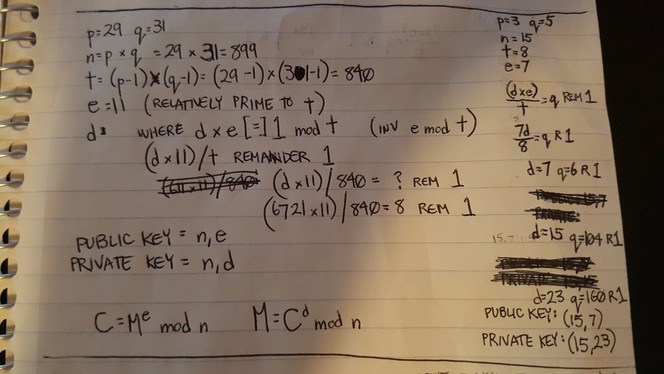 p=29 q=31
n=p×q = 29 × 31 = 899
t=(p-1)×(q-1)=(29-1)×(31-1)=840
e=11 (RELATIVELY PRIME TO t)
d: WHERE d×e [=] 1 mod t (INV e mod t)
(d×11)/t REMAINDER 1
(d×11)/840= ? REM 1
(6721×11)/840=8 REM 1
PUBLIC KEY = n,e
PRIVATE KEY = n,d
C=Mᵉ mod n M=Cᵈ mod n
p=3 q=5
n=15
t=8
e=7
(d×e)/t =q REM 1
7d/8 =q R1
d=7 q=6 R1
d=15 q=104 R1
d=23 q=160 R1
PUBLIC KEY: (15,7)
PRIVATE KEY: (15,23)